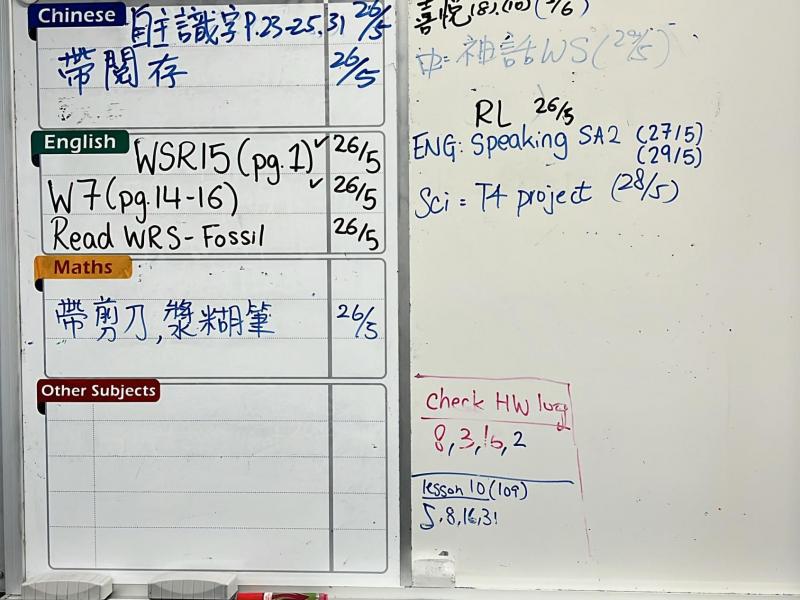 Chinese
自主識字 P.23-25, 31 26/5
帶閱存 26/5
English
WSR15 (pg.1) ✓ 26/5
W7 (pg.14-16) ✓ 26/5
Read WRS - Fossil 26/5
Maths
帶剪刀, 漿糊筆 26/5
Other Subjects
喜悅 (8), (10)
神話 WS
RL 26/5
ENG: Speaking SA2 (27/5)
(29/5)
Sci = T4 project (28/5)
check HW
8, 3, 16, 2
lesson 10 (109)
5, 8, 16, 31